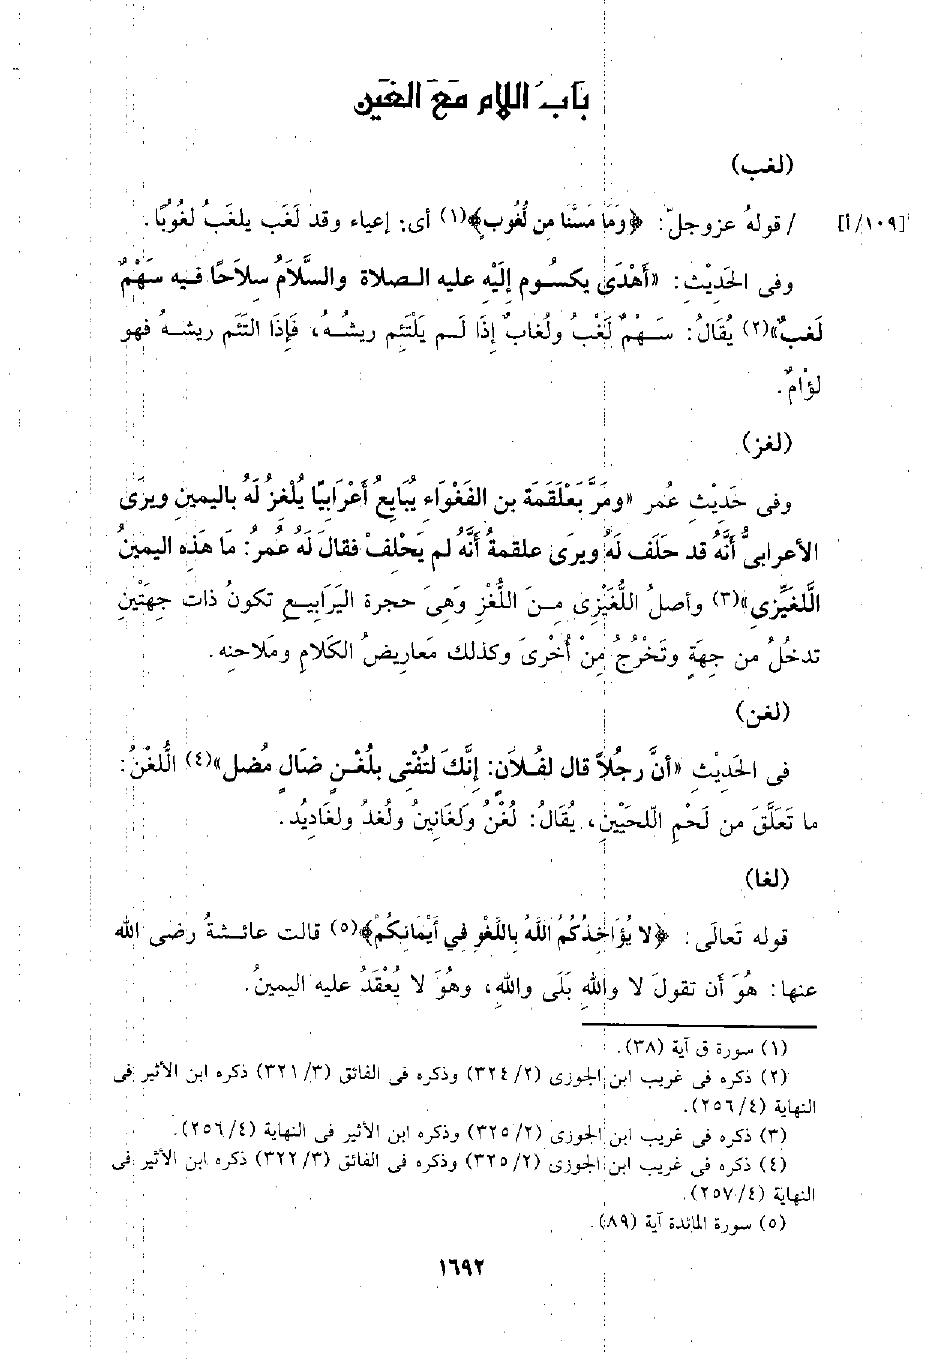 بَابُ اللام مَعَ الغَين
(لغب)
[١٠٩/أ] / قولهُ عزوجلّ: ﴿وَمَا مَسَّنَا مِن لُّغُوبٍ﴾(١) أى: إعياء وقد لَغَب يلغَبُ لغُوبًا.
وفى الحَدِيْثِ: «أَهْدَى يكسُوم إِلَيْهِ عليه الصلاة والسَّلاَمُ سلاَحًا فيه سَهْمٌ
لَغبٌ»(٢) يُقَالُ: سَهْمٌ لَغْبُ ولُغابٌ إذَا لم يَلْتَئِم ريشُهُ، فَإِذَا التَئَم ريشهُ فهو
لؤَامٌ.
(لغز)
وفى حَدِيْثِ عُمر «ومَرَّ بَعْلَقَمَة بن الفَغْوَاء يُبَايعُ أَعْرَابِيًا يُلْغزُ لَهُ باليمينِ ويرَى
الأعرابىُّ أنَّهُ قد حَلَف لَهُ ويرَى علقمةُ أَنَّهُ لم يَحْلفْ فقالَ لَهُ عُمرُ: مَا هذِه اليمينُ
اللَّغيِّزي»(٣) وأصلُ اللُّغَيْزى مِنَ اللُّغْزِ وَهِىَ حجرة اليَرَابيع تكونُ ذات جِهتَيْنِ
تدخُلُ من جِهةٍ وتَخْرُجُ مِنْ أُخْرىَ وكذلك مَعاريضُ الكَلامِ ومَلاحنِه.
(لغن)
فى الحَدِيْثِ «أنَّ رجُلاً قال لفُلاَنٍ: إنَّكَ لتُفْتِى بلُغْنٍ ضَالٍ مُضل»(٤) اللُّغْنُ:
ما تَعَلَّقَ من لَحْمِ اللّحيَيْنِ، يُقَالُ: لُغْنُ وَلَغَانِينُ ولُغدُ ولغَاديُد.
(لغا)
قوله تَعالَى: ﴿لا يُؤَاخِذُكُمُ اللَّهُ بِاللَّغْوِ فِي أَيْمَانِكُمْ﴾(٥) قالت عائشةُ رضى الله
عنها: هُوَ أن تقولَ لا واللهِ بَلَى واللهِ، وهُوَ لا يُعْقَدُ عليه اليمينُ.
(١) سورة ق آية (٣٨).
(٢) ذكره فى غريب ابن الجوزى (٣٢٤/٢) وذكره فى الفائق (٣٢١/٣) ذكره ابن الأثير فى
النهاية (٢٥٦/٤).
(٣) ذكره فى غريب ابن الجوزى (٣٢٥/٢) وذكره ابن الأثير فى النهاية (٢٥٦/٤).
(٤) ذكره فى غريب ابن الجوزى (٣٢٥/٢) وذكره فى الفائق (٣٢٢/٣) ذكره ابن الأثير فى
النهاية (٢٥٧/٤).
(٥) سورة المائدة آية (٨٩).
١٦٩٢